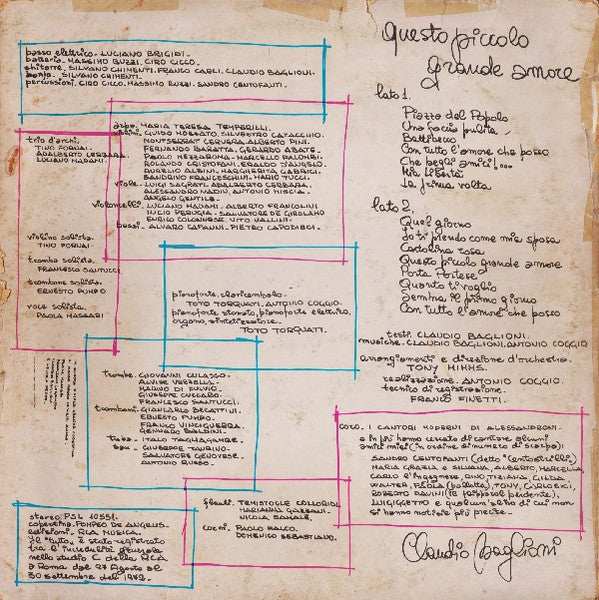 Questo piccolo
grande amore
lato 1.
Piazza del Popolo
Una faccia pulita
Battibecco
Con tutto l'amore che posso
Che begli amici!...
Mia libertà
La prima volta
lato 2.
Quel giorno
Io ti prendo come mia sposa
Cartolina rosa
Questo piccolo grande amore
Porta Portese
Quanto ti voglio
Sembra il primo giorno
Con tutto l'amore che posso
testi. CLAUDIO BAGLIONI.
musiche. CLAUDIO BAGLIONI. ANTONIO COGGIO
arrangiamenti e direzione d'orchestra.
TONY MIMMS.
realizzazione. ANTONIO COGGIO
tecnico di registrazione.
FRANCO FINETTI.
basso elettrico. LUCIANO BRIGIDI.
batteria. MASSIMO BUZZI. CIRO CICCO.
chitarre. SILVANO CHIMENTI. FRANCO CARLI. CLAUDIO BAGLIONI.
banjo. SILVANO CHIMENTI.
percussioni. CIRO CICCO. MASSIMO BUZZI. SANDRO CENTOFANTI.
arpa. MARIA TERESA TEMPERILLI.
violini. GUIDO MOZZATO. SILVESTRO CATACCHIO.
MONTSERRAT CERVERA. ALBERTO PINI.
FERNANDO BARATTA. GERARDO ABATE.
PAOLO MEZZAROMA. MARCELLO PALOMBI.
ROLANDO CRISTOFANI. ERALDO D'ANGELO.
AURELIO ALBINI. MARGHERITA GABRICI.
SANDRINO FRANCESCHINI. MARIO TUCCI.
viole. LUIGI SAGRATI. ADALBERTO CERBARA.
ALESSANDRO NADIN. ANTONIO MISCIA.
ANGELO GENTILE.
violoncelli. LUCIANO MADAMI. ALBERTO FRANCOLINI
LUCIO PERUGIA. SALVATORE DE GIROLAMO
ENRICO COLONNESE. VITO VALLINI.
bassi. ALVARO CAPANNI. PIETRO CAPODIECI.
trio d'archi.
TINO FORNAI.
ADALBERTO CERBARA.
LUCIANO MADAMI.
violino solista.
TINO FORNAI.
tromba solista.
FRANCESCO SANTUCCI.
trombone solista.
ERNESTO PUMPO
voce solista.
PAOLA MASSARI
pianoforte. claricembalo.
TOTO TORQUATI. ANTONIO COGGIO.
pianoforte elettrico,
organo, sintetizzatore.
TOTO TORQUATI.
trombe. GIOVANNI CULASSO.
ALVISE
MARINO DI FULVIO
GIUSEPPE CUCCARO
FRANCESCO SANTUCCI.
tromboni. GIANCARLO BECATTINI.
ERNESTO PUMPO.
FRANCO VINCIGUERRA.
GENNARO BALDINI.
tuba. ITALO TAGNAGAMBE.
sax. GIUSEPPE TOURINO.
SALVATORE GENOVESE.
ANTONIO RUSSO.
flauti. TEMISTOCLE COLLORIDI.
MARIANNA GAZZANI.
NICOLA SAMALE.
corni. PAOLO FALCO.
DOMENICO SEBASTIANO.
coro. I CANTORI MODERNI DI ALESSANDRONI.
e in più hanno cercato di cantare alcuni
amici miei (in ordine di numero di scarpa):
SANDRO CENTOFANTI (detto "Centostrilli")
MARIA GRAZIA e SILVANA, ALBERTO, MARCELLA,
CARLO l'Ingegnere, RINO, TIZIANA, GILDA,
WALTER, PAOLA (paoletta), TONY, CARLO BICI,
ROBERTO DAVINI (le flipposal perdente),
LUIGIGETTO e qualcun'altro di cui non
si hanno notizie più precise.
stereo PSL 10551.
copertina. POMPEO DE ANGELIS.
edizioni. RCA MUSICA.
Il "tutto" è stato registrato
tra l'incredulità generale
nello studio C della RCA
a Roma dal 27 Agosto al
30 settembre del 1972.
Claudio Baglioni